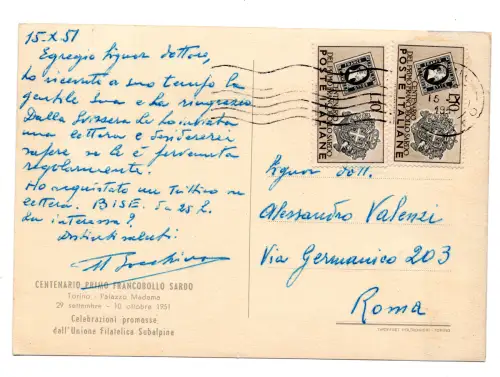 15.X.51
Egregio Signor Dottore,
ho ricevuto a suo tempo la
gentile sua e la ringrazio
Dalla Svizzera Le ho inviato
una lettera e desidererei
sapere se Le è pervenuta
regolarmente.
Ho acquistato un
lettera. BISE. da 25 L.
La interessa?
Distinti saluti
CENTENARIO PRIMO FRANCOBOLLO SARDO
Torino - Palazzo Madama
29 settembre - 10 ottobre 1951
Celebrazioni promosse
dall'Unione Filatelica Subalpina
POSTE ITALIANE
POSTE ITALIANE
Signor dott.
Alessandro Valenzi
Via Germanico 203
Roma